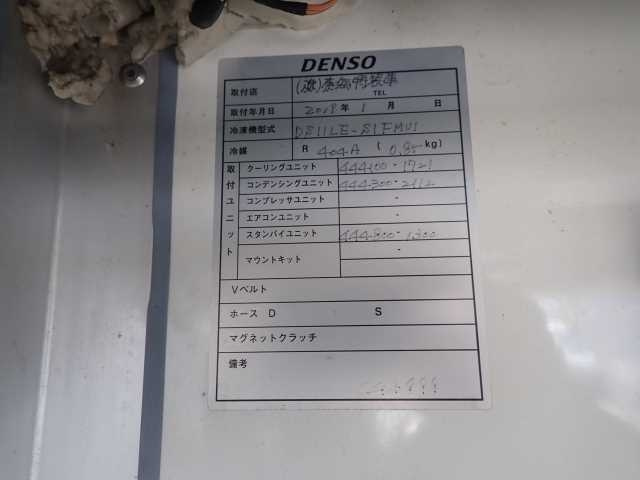 DENSO
取付店
TEL
取付年月日 2018年 1月 日
冷凍機型式 DS11LE-S1FMU1
冷媒 R 404A ( 0.85 kg)
取付ユニット
クーリングユニット 444100-1721
コンデンシングユニット 444300-2112
コンプレッサユニット -
エアコンユニット -
スタンバイユニット 444800-1300
マウントキット -
Vベルト
ホース D S
マグネットクラッチ
備考